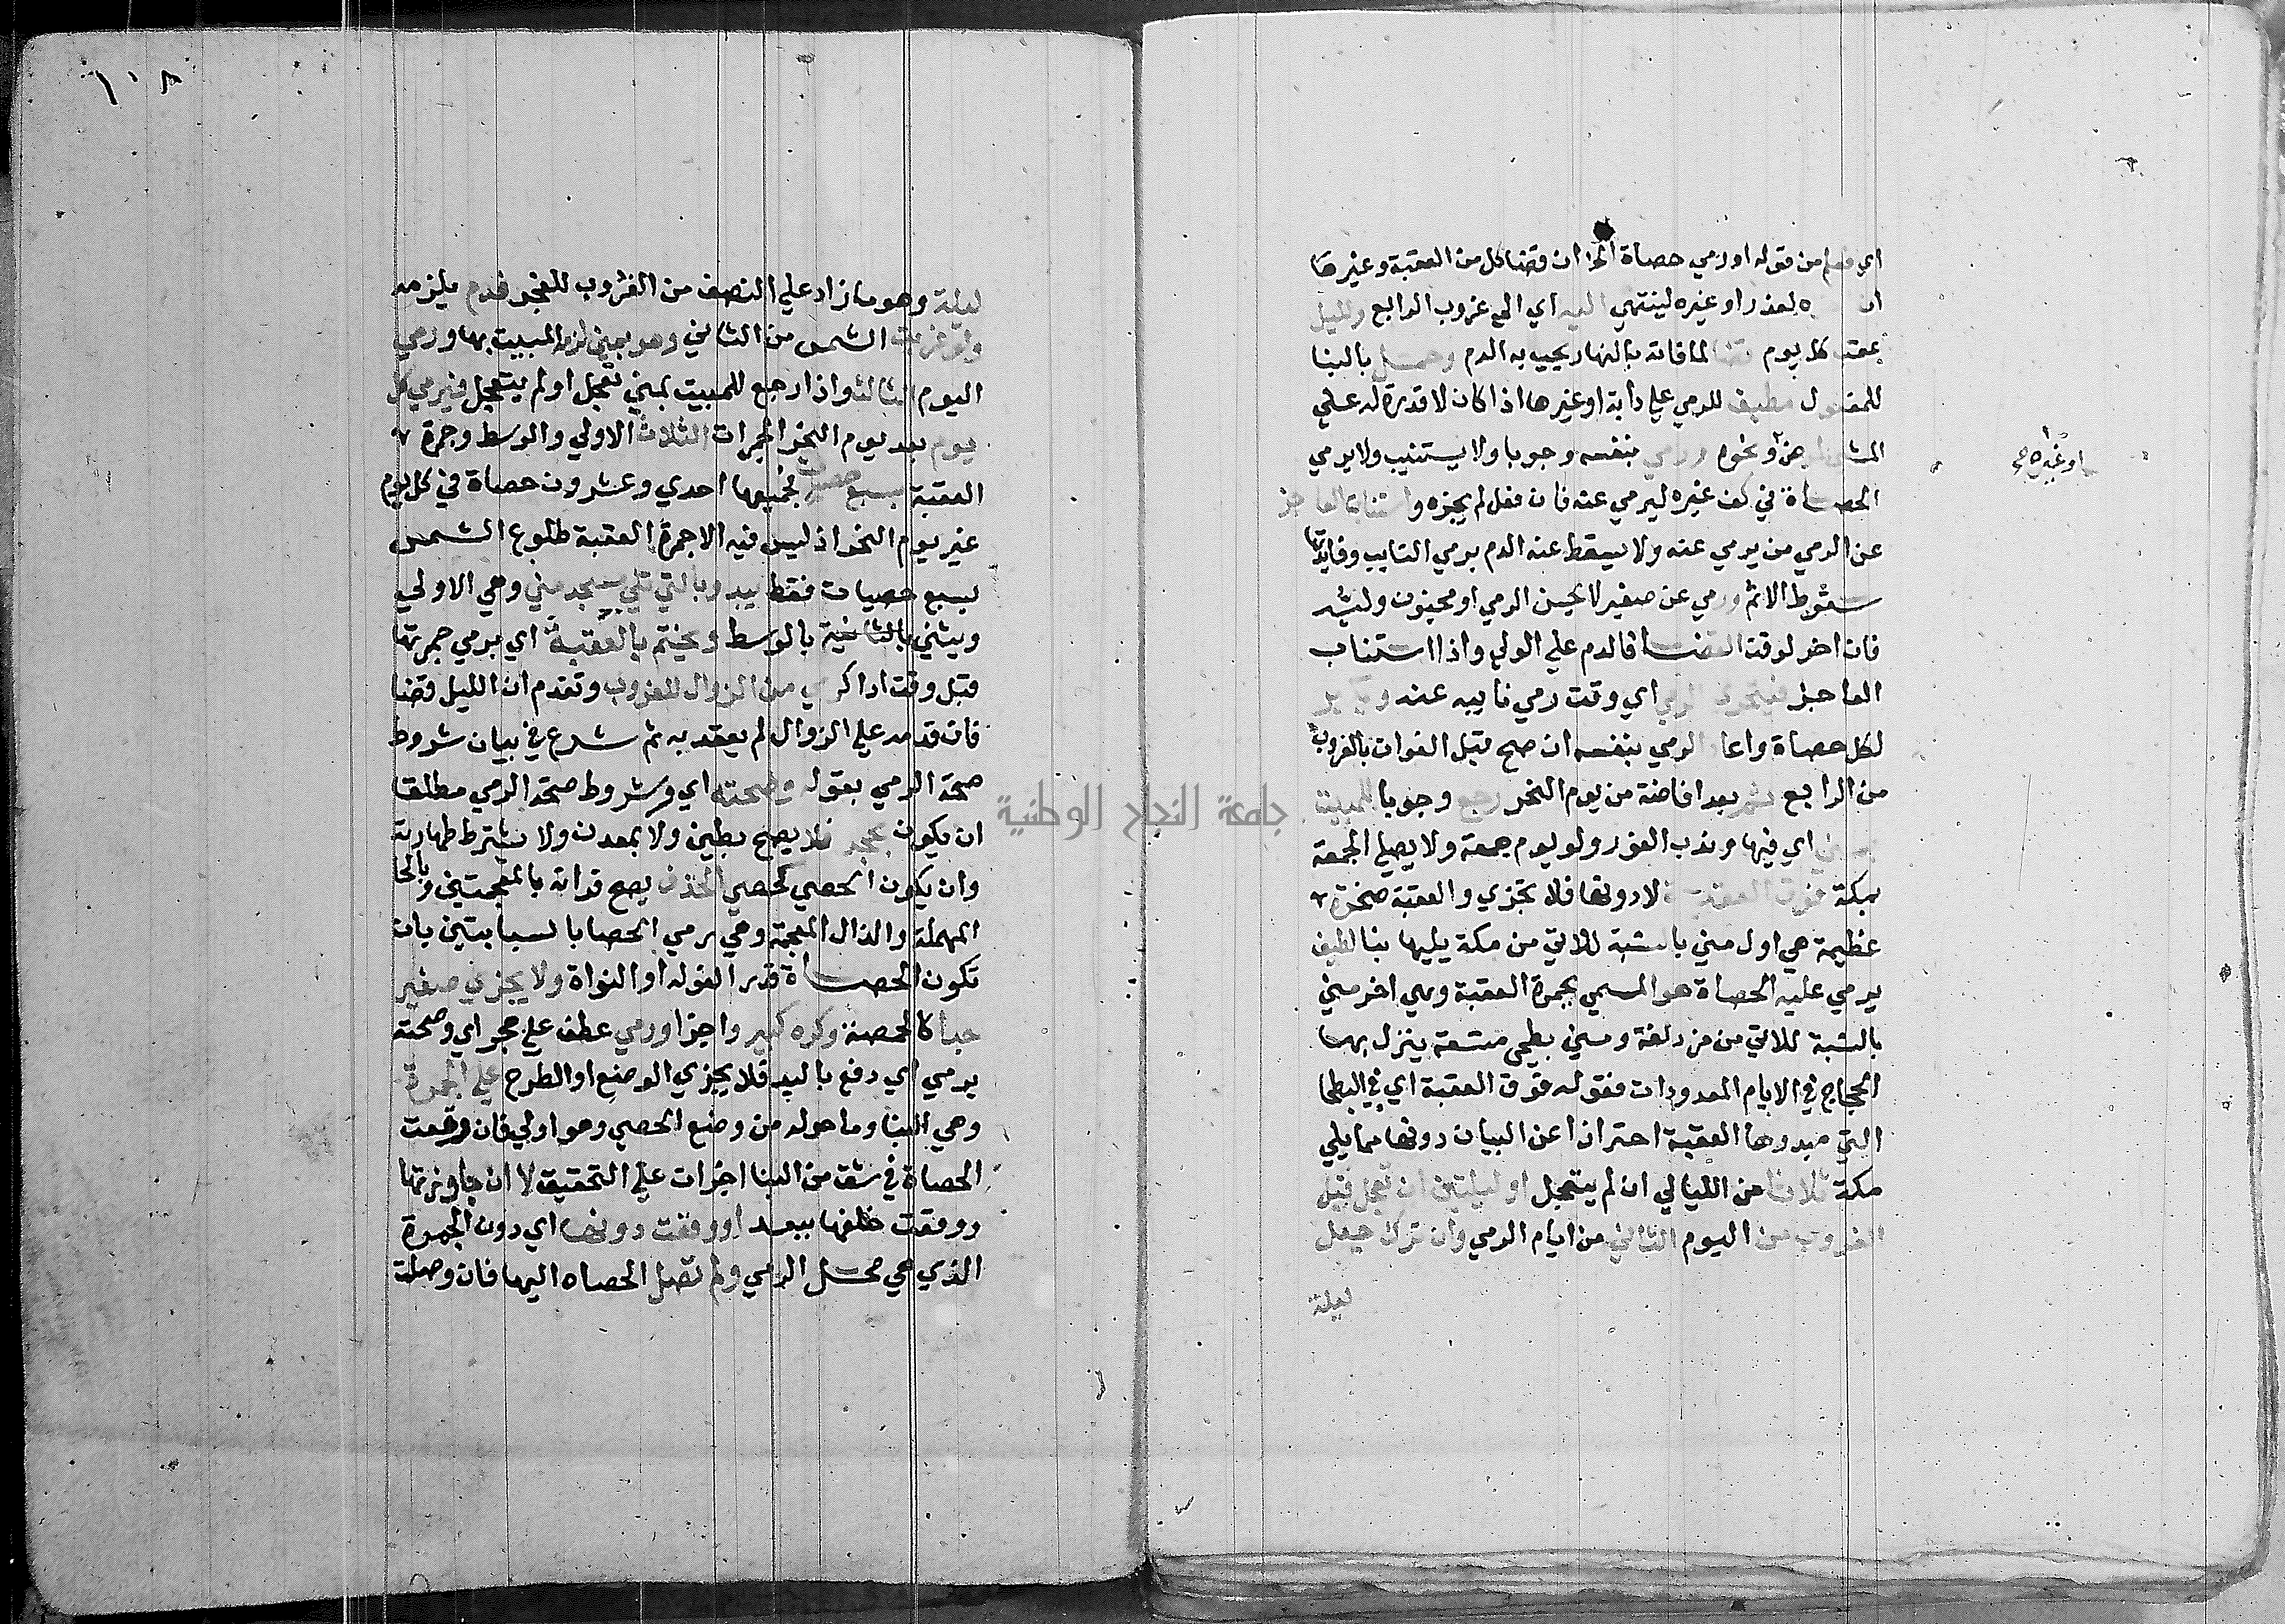 اي فعلم من قوله او رمي حصاة الخ ان قضا كل من العقبة وغيرها
ان لعذر او غيره لينتهي اليه اي الي غروب الرابع والليل
عقب كل يوم قضا لما فاته بالنهار يجيب به الدم وحمل بالبنا
للمفعول مطيق للرمي علي دابة او غيرها اذا كان لا قدرة له علي
المشي لمرض او نحوه ورمي بنفسه وجوبا ولا يستنيب ولا يرمي
او غيره صح
الحصاة في كف غيره ليرمي عنه فان فعل لم يجزه واستناب العاجز
عن الرمي من يرمي عنه ولا يسقط عنه الدم برمي النايب وفايدتها
سقوط الاثم ورمي عن صغير لا يحسن الرمي او مجنون وليه
فان اخر لوقت القضا فالدم علي الولي واذا استناب
العاجز فيتحري الرمي اي وقت رمي نايبه عنه وكبر
لكل حصاة واعاد الرمي بنفسه ان صح قبل الفوات بالغروب
من الرابع ثم بعد افاضته من يوم النحر رجع وجوبا للمبيت
بمني اي فيها وندب الفور ولو يوم جمعة ولا يصلي الجمعة
بمكة فوق العقبة لا دونها فلا تجزي والعقبة صخرة
عظيمة هي اول مني بالنسبة للاتي من مكة يليها بنا لطيف
يرمي عليه الحصاة هو المسمي بجمرة العقبة وهي اخر مني
بالنسبة للاتي من مزدلفة ومني بطحي متسعة ينزل بها
الحجاج في الايام المعدودات فقوله فوق العقبة اي في البطحا
التي مبدوها العقبة احترازا عن البيات دونها مما يلي
مكة ثلاثا من الليالي ان لم يتعجل او ليلتين ان تعجل قبل
الغروب من اليوم الثاني من ايام الرمي وان ترك جعل
ليلة
١٠٨
ليلة وهو ما زاد علي النصف من الغروب للفجر فدم يلزمه
ولو غربت الشمس من الثاني وهو بمني لزمه المبيت بها ورمي
اليوم الثالث واذا رجع للمبيت بمني تعجل او لم يتعجل فيرمي كل
يوم بعد يوم النحر الجمرات الثلاث الاولي والوسط وجمرة
العقبة بسبع حصيات فجميعها احدي وعشرون حصاة في كل يوم
غير يوم النحر اذ ليس فيه الا جمرة العقبة طلوع الشمس
بسبع حصيات فقط يبدو بالتي تلي مسجد مني وهي الاولي
ويثني بالثانية بالوسط ويختم بالعقبة اي برمي جمرتها
قبل وقت ادا كل رمي من الزوال للغروب وتقدم ان الليل قضا
فان قدمه علي الزوال لم يعتد به ثم شرع في بيان شروط
صحة الرمي بقوله وصحته اي وشروط صحة الرمي مطلقا
ان يكون بحجر فلا يصح بطين ولا بمعدن ولا يشترط طهارته
وان يكون الحصي كحصي الخذف يصح قراته بالمعجمتين وبالحا
المهملة والذال المعجمة وهي رمي الحصا بالسبابتين بان
تكون الحصاة قدر الفوله او النواة ولا يجزي صغير
جدا كالحمصة وكره كبير واجزا ورمي عطف علي حجر اي وصحته
برمي اي دفع باليد فلا يجزي الوضع او الطرح علي الجمرة
وهي البنا وما حوله من وضع الحصي وهو اولي فان وقعت
الحصاة في شق من البنا اجزات علي التحقيق لا ان جاوزتها
ووقعت خلفها ببعد او وقعت دونها اي دون الجمرة
الذي هي محل الرمي ولم تصل الحصاه اليها فان وصلت
جامعة النجاح الوطنية